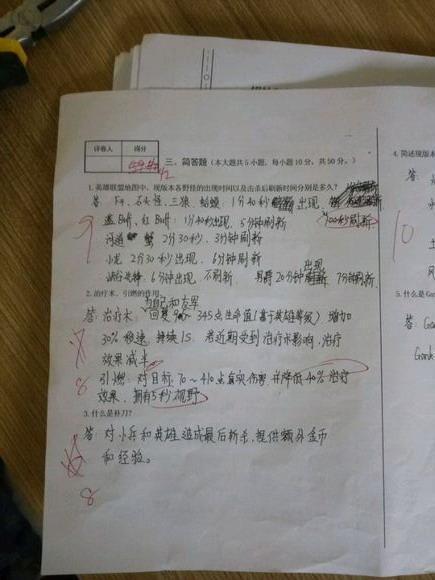 评卷人 得分
三、简答题（本大题共5小题，每小题10分，共50分。）
1.英雄联盟地图中，现版本各野怪的出现时间以及击杀后刷新时间分别是多久？
答: F4、石头怪、三狼、蛤蟆: 1分40秒出现,
100秒刷新
蓝Buff、红Buff: 1分40秒出现, 5分钟刷新
河道蟹 2分30秒. 3分钟刷新
小龙 2分30秒出现, 6分钟刷新
峡谷先锋: 6分钟出现, 不刷新. 男爵20分钟出现 7分钟刷新.
9
2.治疗术、引燃的作用
为自己和友军
答: 治疗术: 回复90~345点生命值(基于英雄等级) 增加
30%移速, 持续1S. 若近期受到治疗术影响, 治疗
效果减半
引燃: 对目标70~410点真实伤害 并降低40%治疗
效果, 拥有5秒视野
8
3.什么是补刀？
答: 对小兵和英雄造成最后斩杀, 提供额外金币
和经验。
8
4.简述现版本
答:
10
5.什么是G
答: Gan
Gank